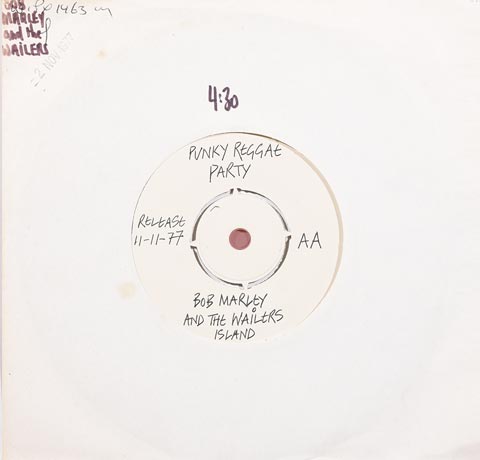 1463 m
BOB
MARLEY
and the
WAILERS
-2 NOV 1977
4:30
PUNKY REGGAE
PARTY
RELEASE
11-11-77
AA
BOB MARLEY
AND THE WAILERS
ISLAND